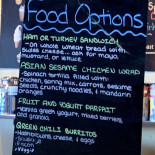 Food Options
HAM OR TURKEY SANDWICH
- On whole wheat bread with
swiss cheese... ask for mayo,
mustard, or lettuce
ASIAN SESAME CHICKEN WRAP
- Spinach tortilla filled with:
chicken, spring mix, carrots, sesame
seeds, crunchy noodles, & mandarin
oranges
FRUIT AND YOGURT PARFAIT
- Layered greek yogurt, mixed berries,
and granola
GREEN CHILI BURRITOS
cheese, & eggs